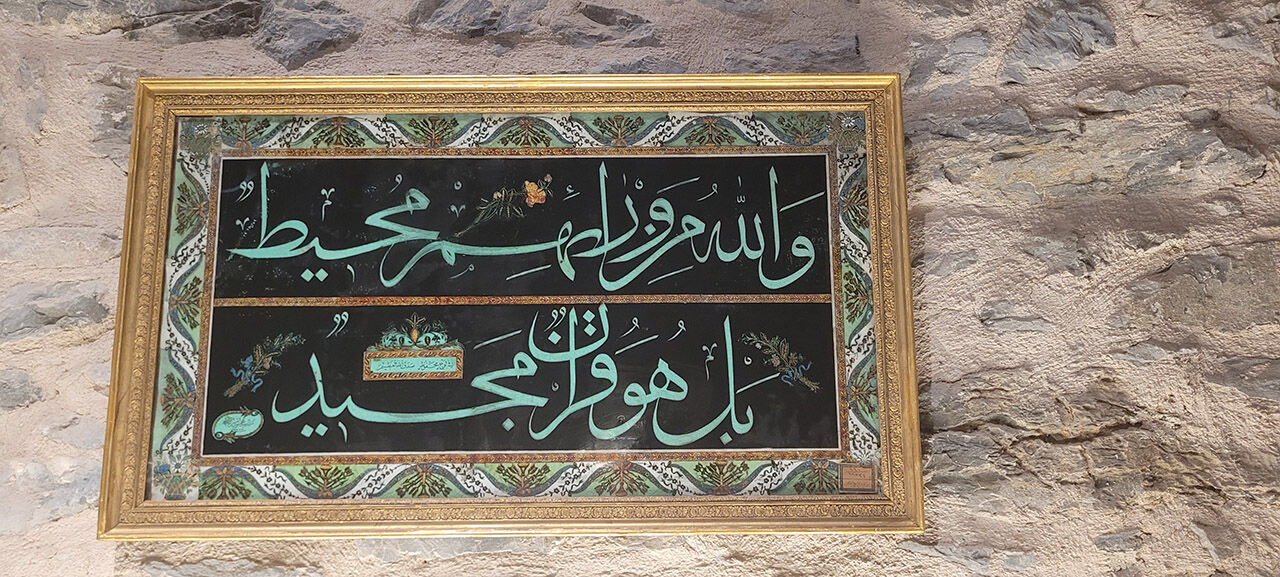 وَاللّٰهُ مِنْ وَرٰائِهِمْ مُحيطٌ
بَلْ هُوَ قُرْاٰنٌ مَجيدٌ